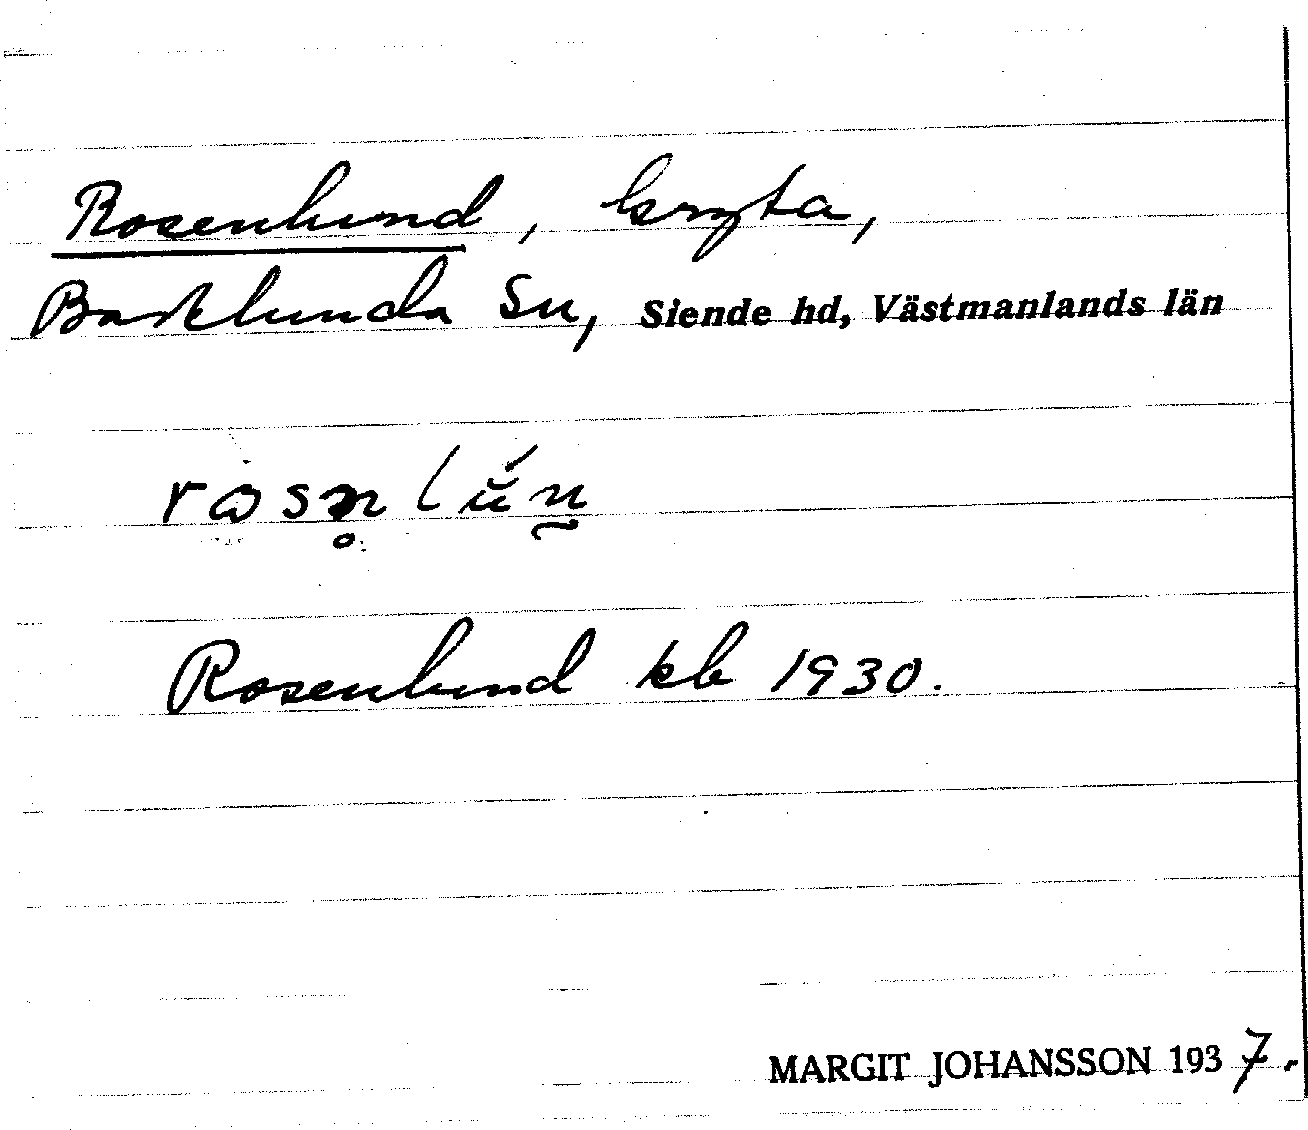 Rosenlund, Gryta,
Badelunda Sn, Siende hd, Västmanlands län
Rosenlund kb 1930.
MARGIT JOHANSSON 1937.